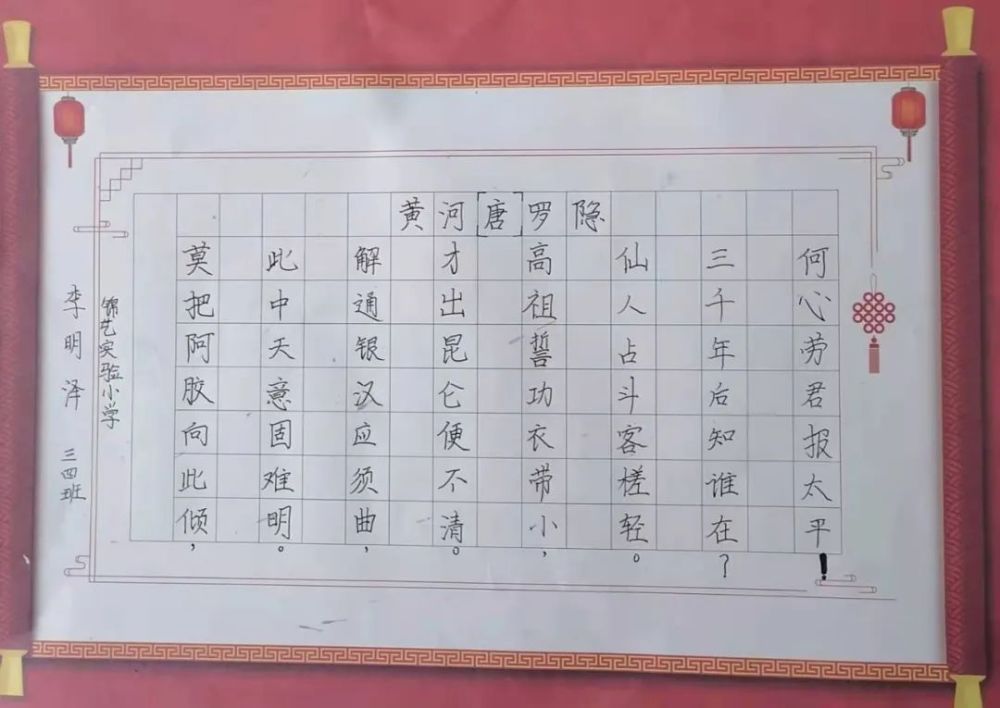 黄河[唐]罗隐
莫把阿胶向此倾，
此中天意固难明。
解通银汉应须曲，
才出昆仑便不清。
高祖誓功衣带小，
仙人占斗客槎轻。
三千年后知谁在？
何心劳君报太平！
锦艺实验小学
李明泽 三四班